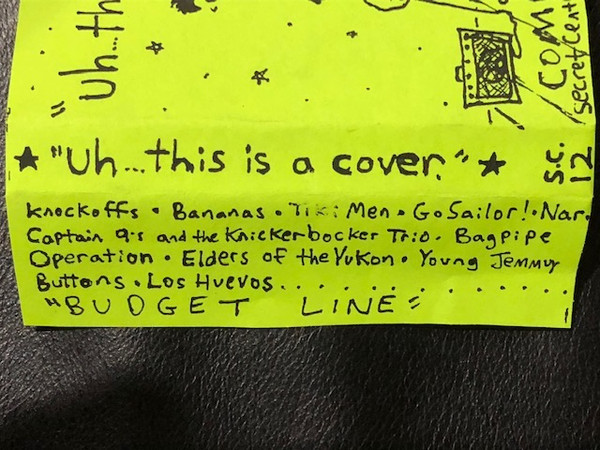 "Uh...th
COM
Secret Cent
★ "Uh...this is a cover." ★
S.C. 12
Knockoffs • Bananas • Tiki Men • Go Sailor! • Nar.
Captain 9's and the Knickerbocker Trio • Bagpipe
Operation • Elders of the Yukon • Young Jemmuy
Buttons • Los Huevos..............
"BUDGET LINE"